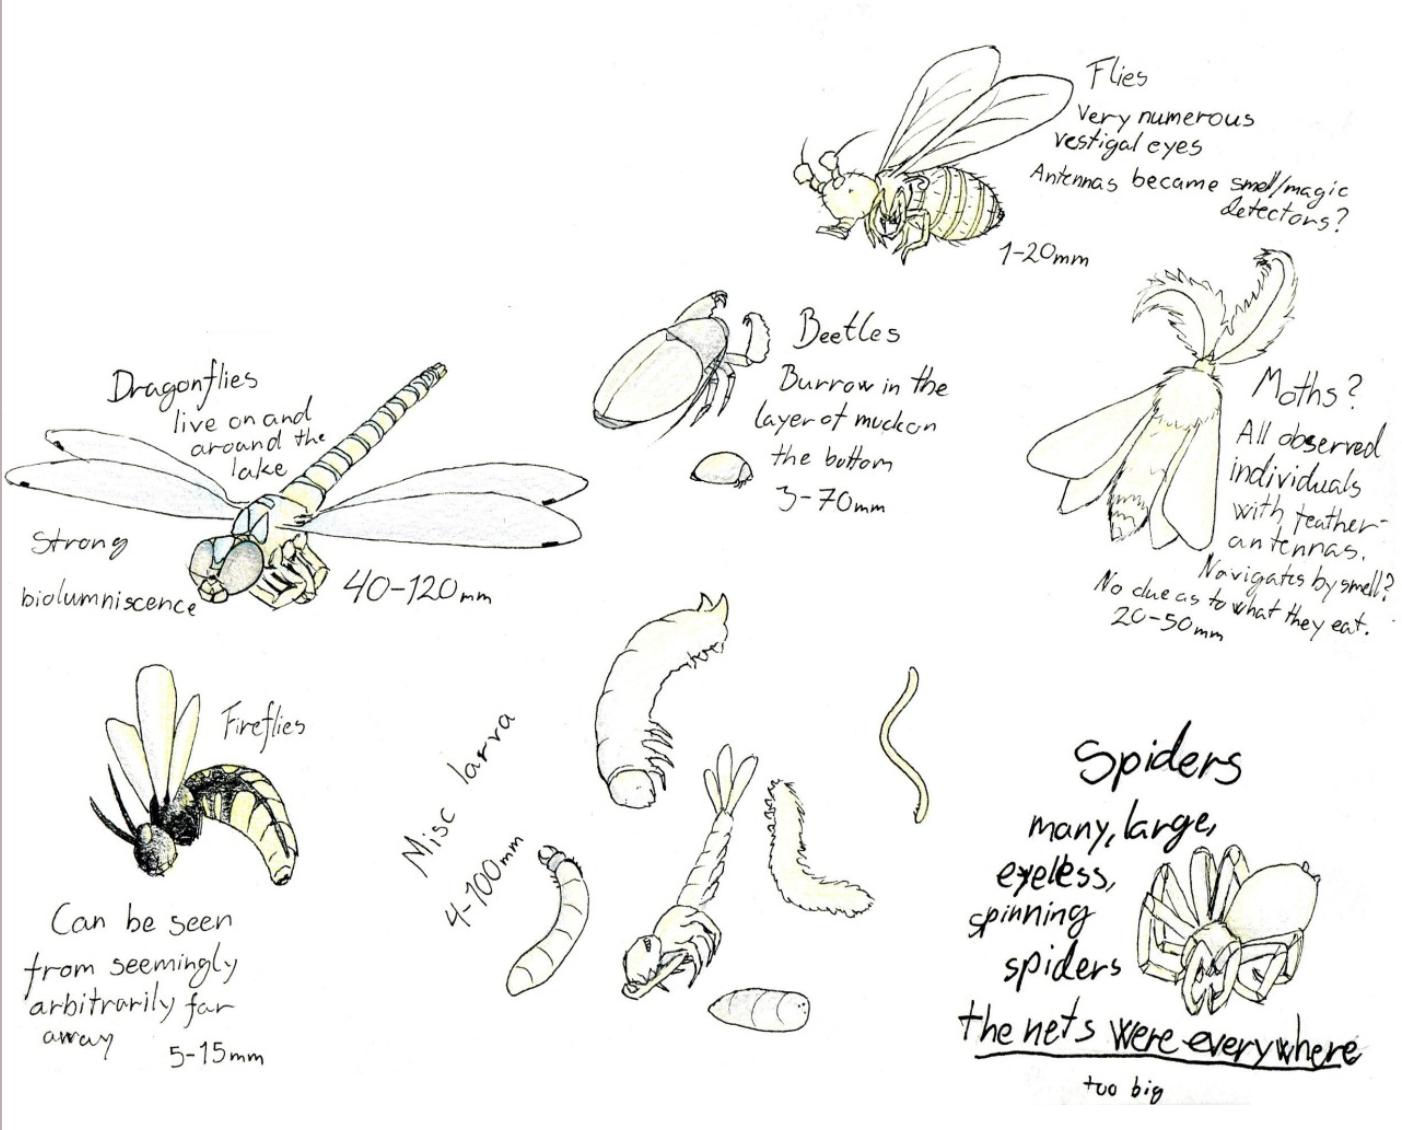 Flies
Very numerous
vestigal eyes
Antennas became smell/magic
detectors?
1-20mm
Beetles
Burrow in the
layer of muck on
the bottom
3-70mm
Moths?
All observed
individuals
with feather-
antennas.
Navigates by smell?
No clue as to what they eat.
20-50mm
Dragonflies
live on and
around the
lake
Strong
biolumniscence
40-120mm
Fireflies
Can be seen
from seemingly
arbitrarily far
away
5-15mm
Misc larva
4-100mm
Spiders
many, large,
eyeless,
spinning
spiders
the nets were everywhere
too big